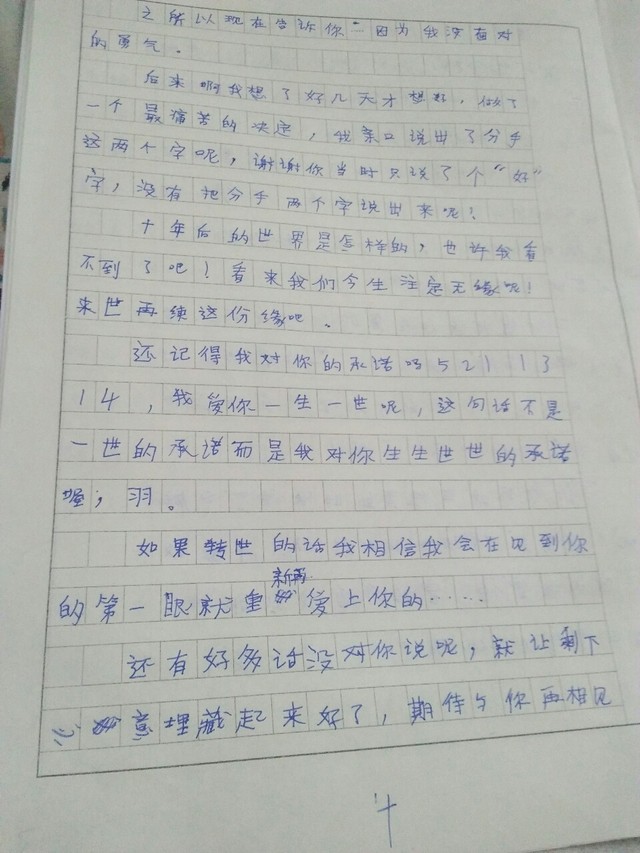 之所以现在告诉你 因为我没有对
的勇气。
后来啊我想了好几天才想好，做了
一个最痛苦的决定，我亲口说出了分手
这两个字呢，谢谢你当时只说了个“好”
字，没有把分手两个字说出来呢！
十年后的世界是怎样的，也许我看
不到了吧！看来我们今生注定无缘呢！
来世再续这份缘吧。
还记得我对你的承诺吗 5 2 1 1 3
1 4 ，我爱你一生一世呢，这句话不是
一世的承诺而是我对你生生世世的承诺
喔；羽。
如果转世的话我相信我会在见到你
的第一眼就重新再爱上你的……
还有好多话没对你说呢，就让剩下
心意埋藏起来好了，期待与你再相见